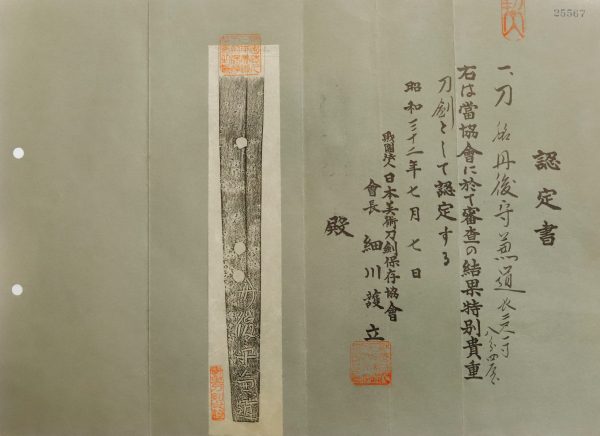 25567
認定書
一、刀 銘 丹後守兼道 長二尺一寸
八分四厘
右は當協會に於て審査の結果特別貴重
刀劍として認定する
昭和三十二年七月七日
財團法人 日本美術刀劍保存協會
會長 細川護立
殿
丹後守兼道